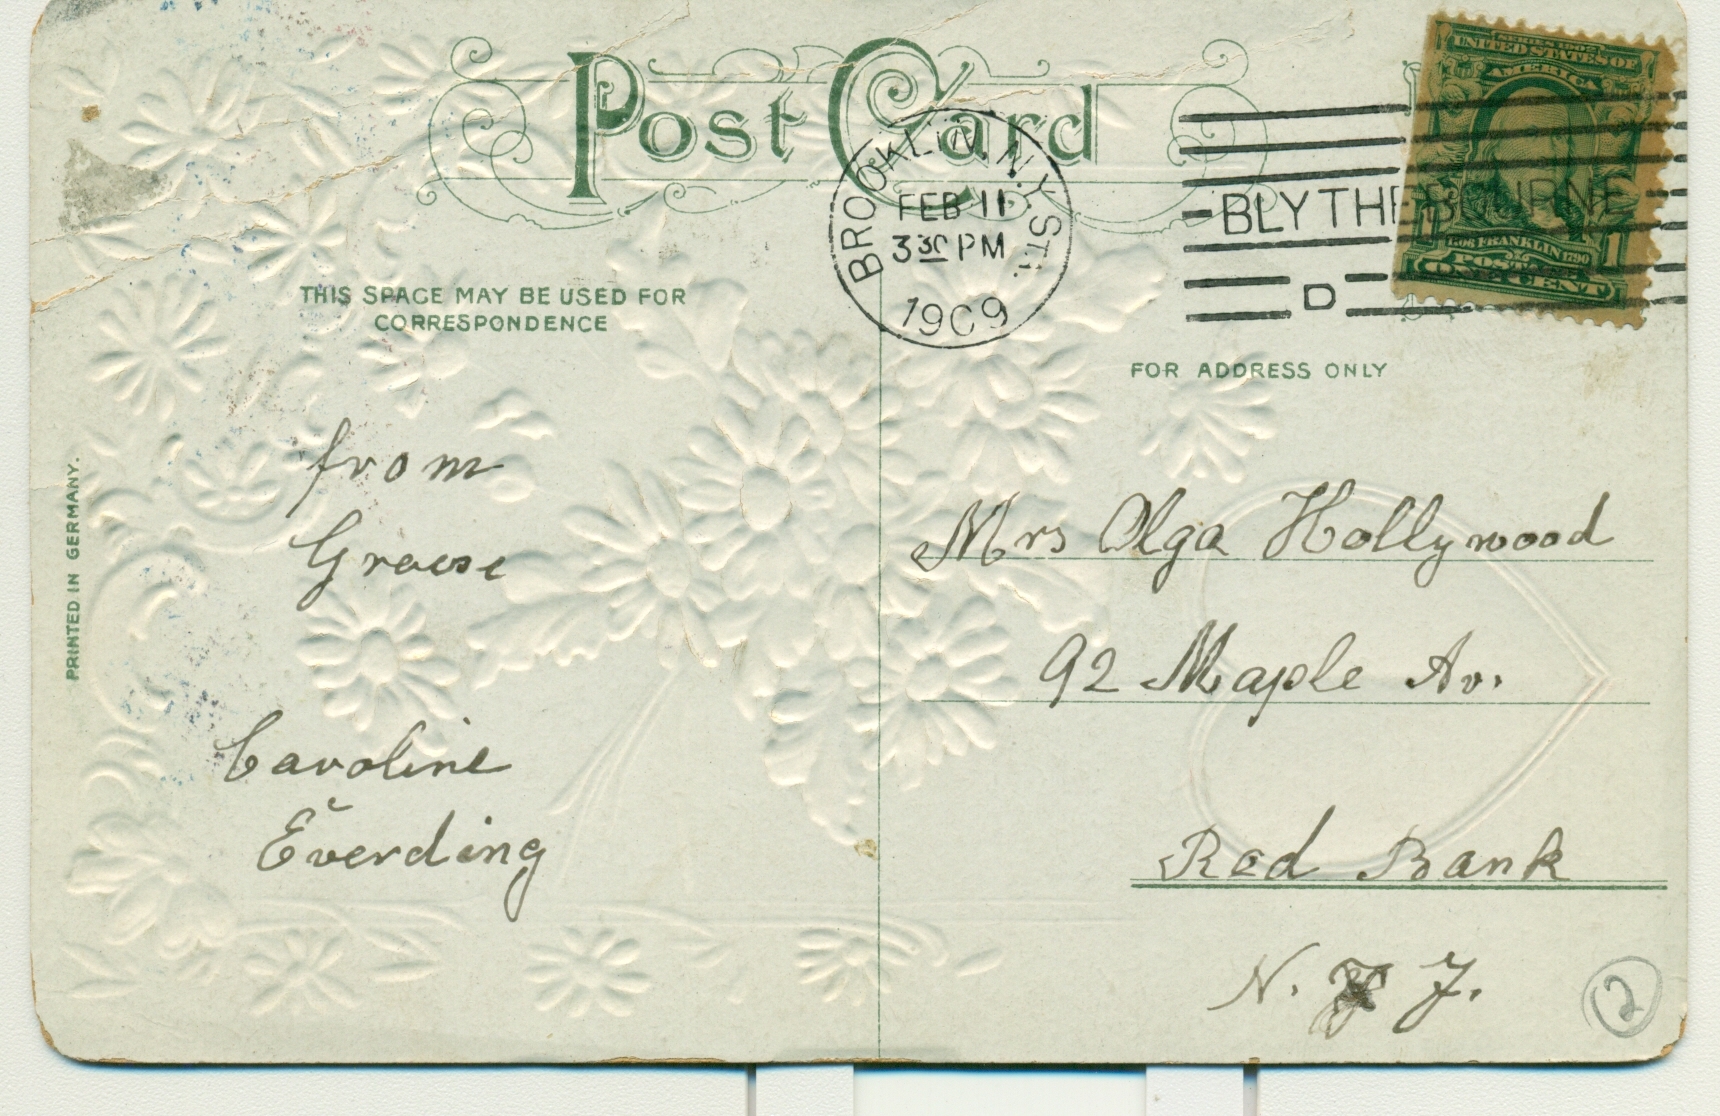 Post Card
BROOKLYN, N.Y. STA.
FEB 11
3 30 PM
1909
BLYTHEBOURNE
D
SERIES 1902
UNITED STATES OF
AMERICA
1706 FRANKLIN 1790
POSTAGE
ONE CENT
THIS SPACE MAY BE USED FOR
CORRESPONDENCE
FOR ADDRESS ONLY
PRINTED IN GERMANY.
from
Caroline
Everding
Mrs Olga Hollywood
92 Maple Av.
Red Bank
N. J.
2